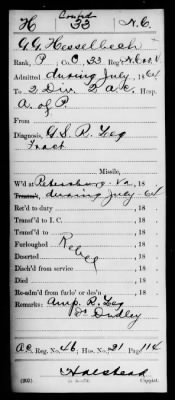 Confed
H 33 N.C.
G. G. Hesselbech
Rank, P ; Co. C, 33 Reg't N.C.
Admitted during July, 1864
To 2 Div. 2 a.c. Hosp.
A. of P.
From
Diagnosis, G.S.R. Leg
Fract
Missile,
W'd at Petersburg Va, 18
during July 64
Ret'd to duty , 18
Transf'd to I. C. , 18
Transf'd to , 18
Furloughed , 18
Rebel
Deserted , 18
Disch'd from service , 18
Died , 18
Re-adm'd from furlo' or des'n , 18
Remarks: Amp. R. Leg
Dr Dudley
A.C. Reg. No. 46; Hos. No. 21 Page 114
Halstead
Copyist.